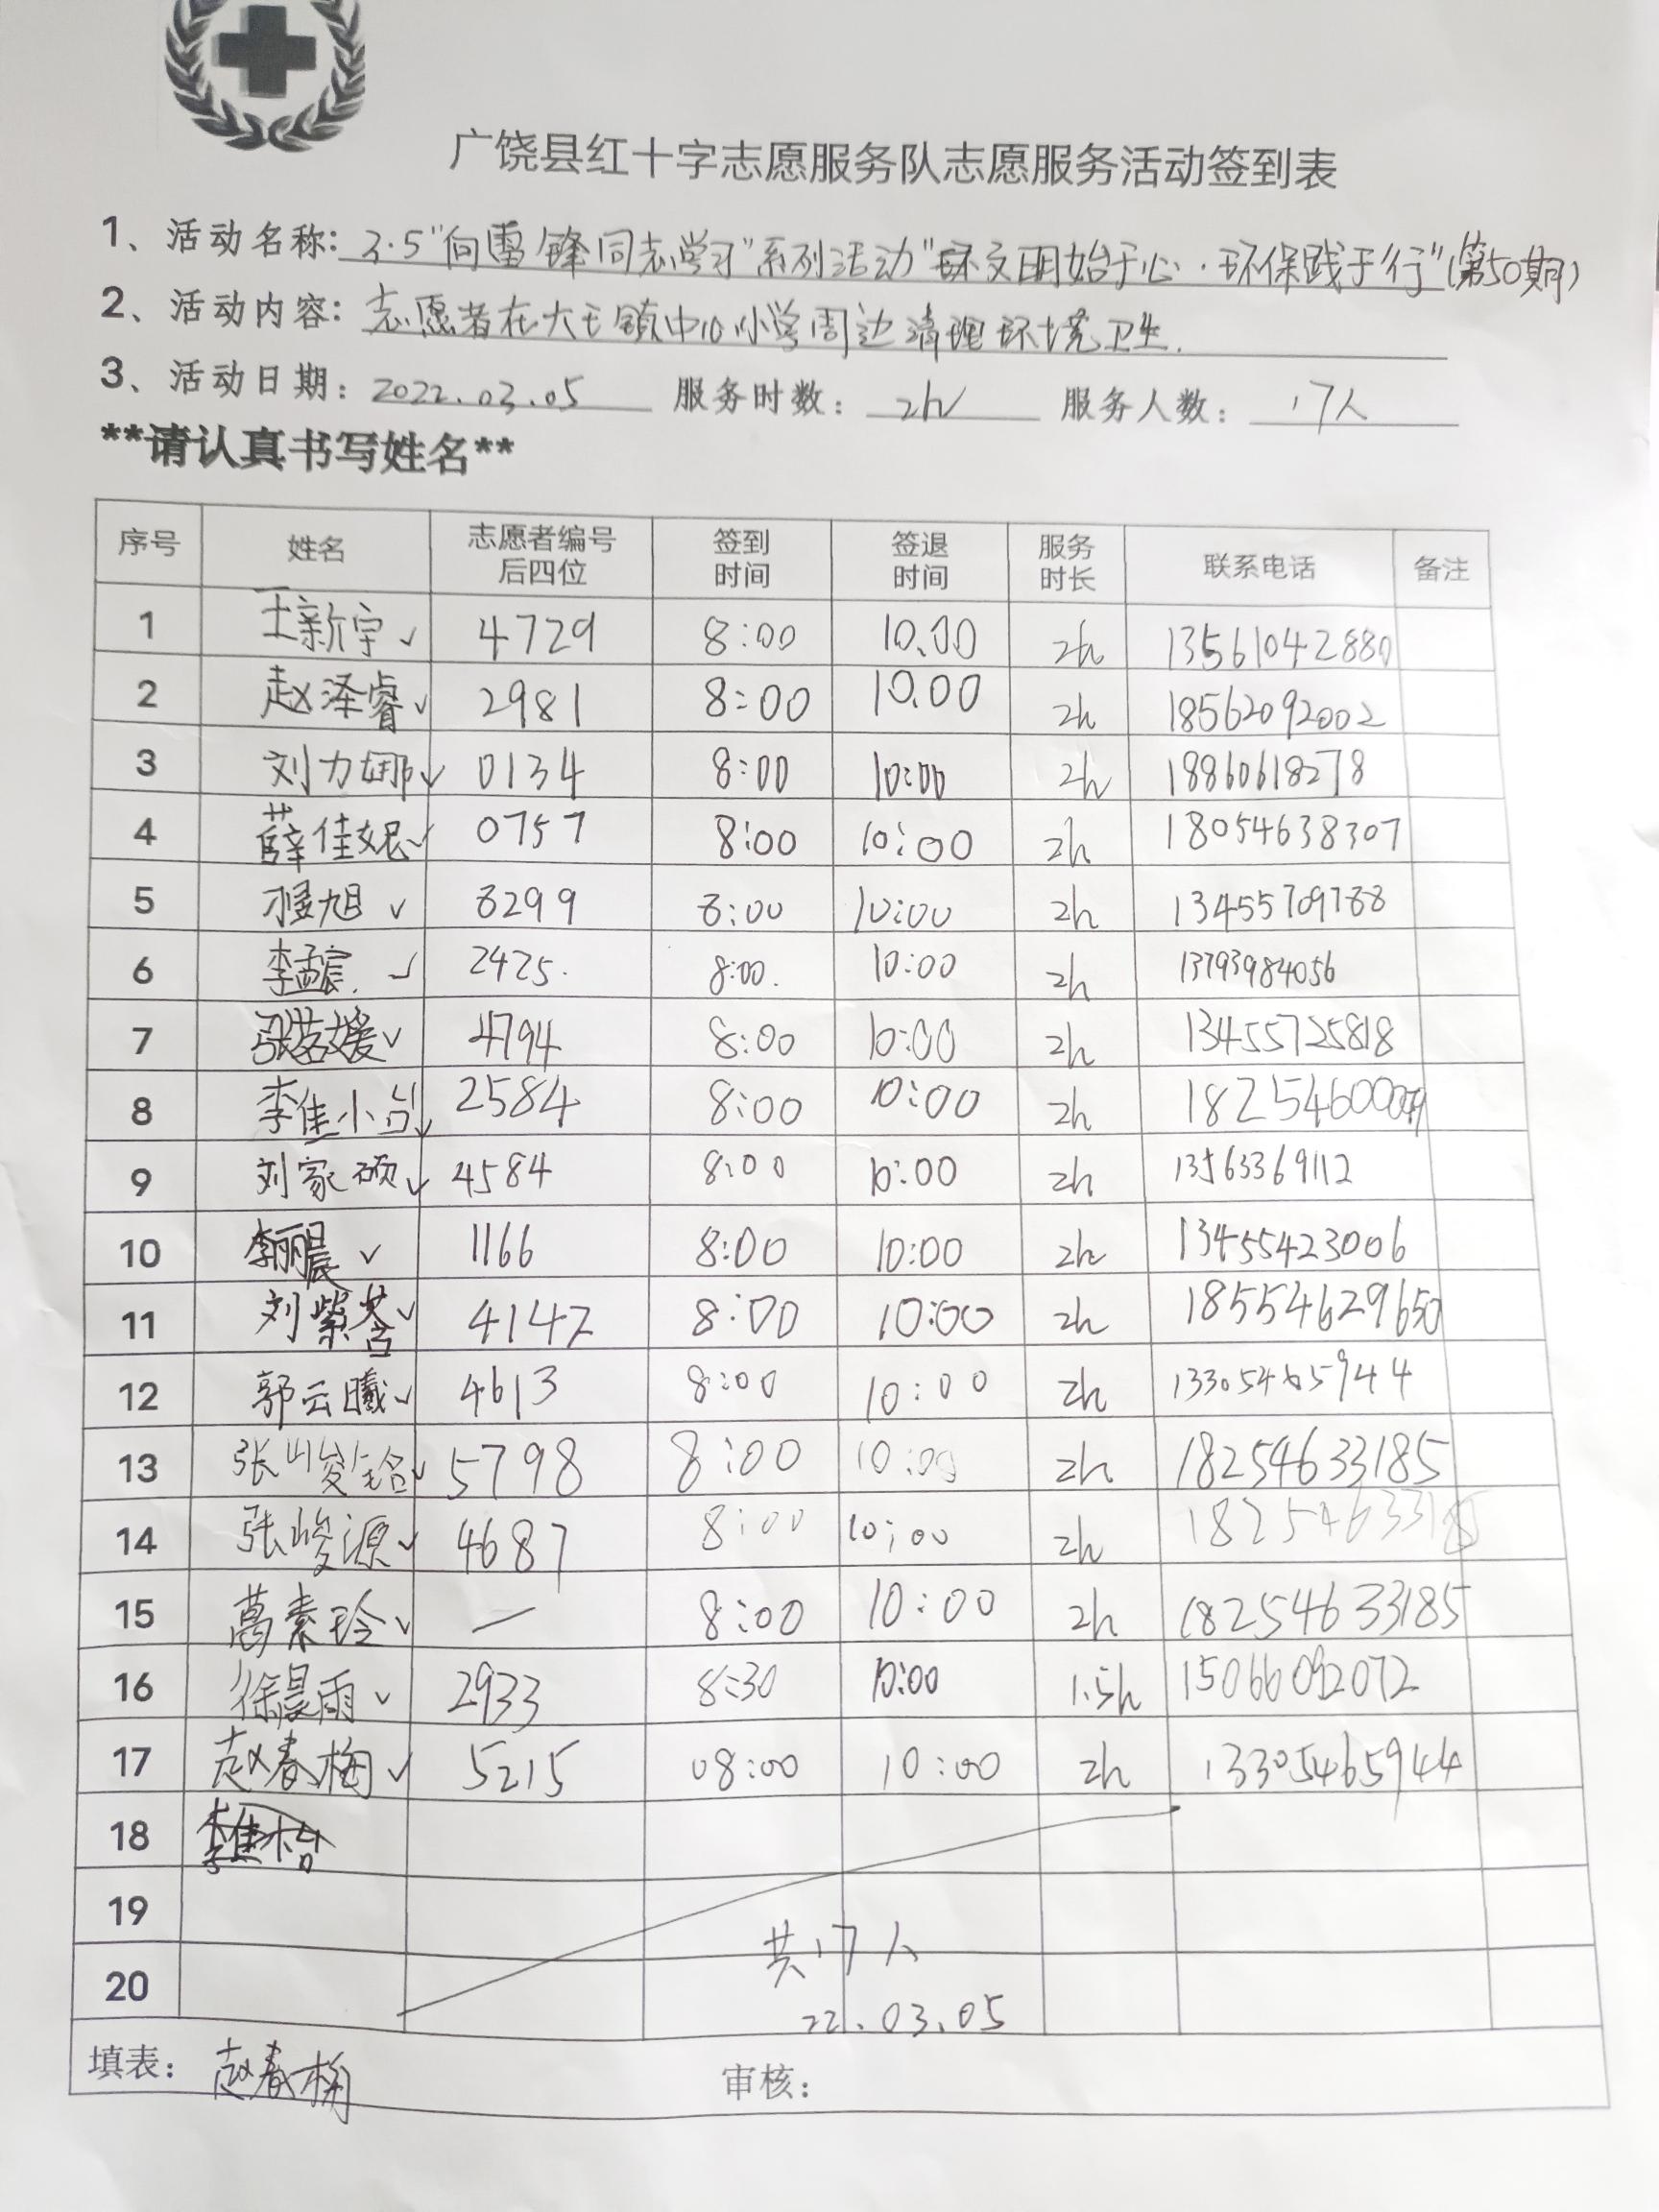 广饶县红十字志愿服务队志愿服务活动签到表
1、活动名称: 3·5"向雷锋同志学习"系列活动"文明始于心·环保践于行"(第50期)
2、活动内容: 志愿者在大王镇中心小学周边清理环境卫生.
3、活动日期: 2022.03.05 服务时数: 2h 服务人数: 17人
**请认真书写姓名**
序号 姓名 志愿者编号后四位 签到时间 签退时间 服务时长 联系电话 备注
1 王新宇✓ 4729 8:00 10.00 2h 13561042880
2 赵泽睿✓ 2981 8:00 10.00 2h 18562092002
3 刘力娜✓ 0134 8:00 10:00 2h 18860618278
4 薛佳妮✓ 0757 8:00 10:00 2h 18054638307
5 旭 ✓ 8299 8:00 10:00 2h 13455709788
6 李孟宸. ✓ 2425. 8:00. 10:00 2h 13793984056
7 张茗媛✓ 4794 8:00 10:00 2h 13455725818
8 李佳怡✓ 2584 8:00 10:00 2h
9 刘家硕✓ 4584 8:00 10:00 2h 13563369112
10 李丽晨 ✓ 1166 8:00 10:00 2h 13455423006
11 刘紫萱✓ 4142 8:00 10:00 2h 18554629650
12 郭云曦✓ 4613 8:00 10:00 2h 13305465944
13 张峻铭✓ 5798 8:00 10:00 2h 18254633185
14 张峻源✓ 4687 8:00 10:00 2h 18254633185
15 葛素玲✓ — 8:00 10:00 2h 18254633185
16 徐晨雨✓ 2933 8:30 10:00 1.5h 15066092072
17 赵春梅✓ 5215 08:00 10:00 2h 13305465944
18
19
共17人
20
22.03.05
填表: 赵春梅 审核: